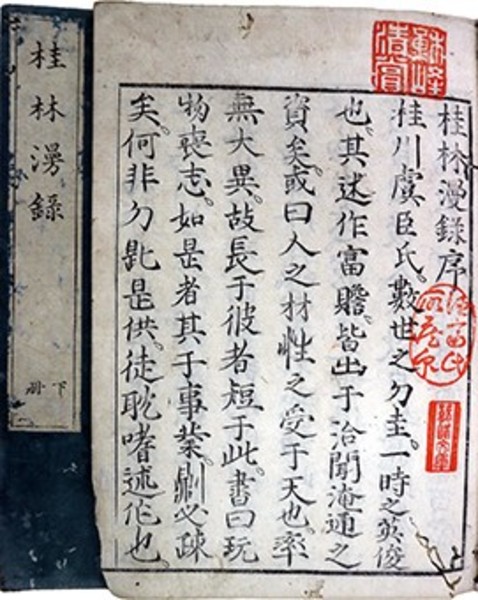 桂林漫錄
下册
蘇峰
清賞
桂林漫錄序
桂川虞臣氏。數世之刀圭。一時之英俊
也。其述作富贍。皆出于洽聞淹通之
資矣。或曰人之材性之受于天也。率
無大異。故長于彼者短于此。書曰玩
物喪志。如是者其于事業則必疎
矣。何非刀匙是供。徒耽嗜述作也。